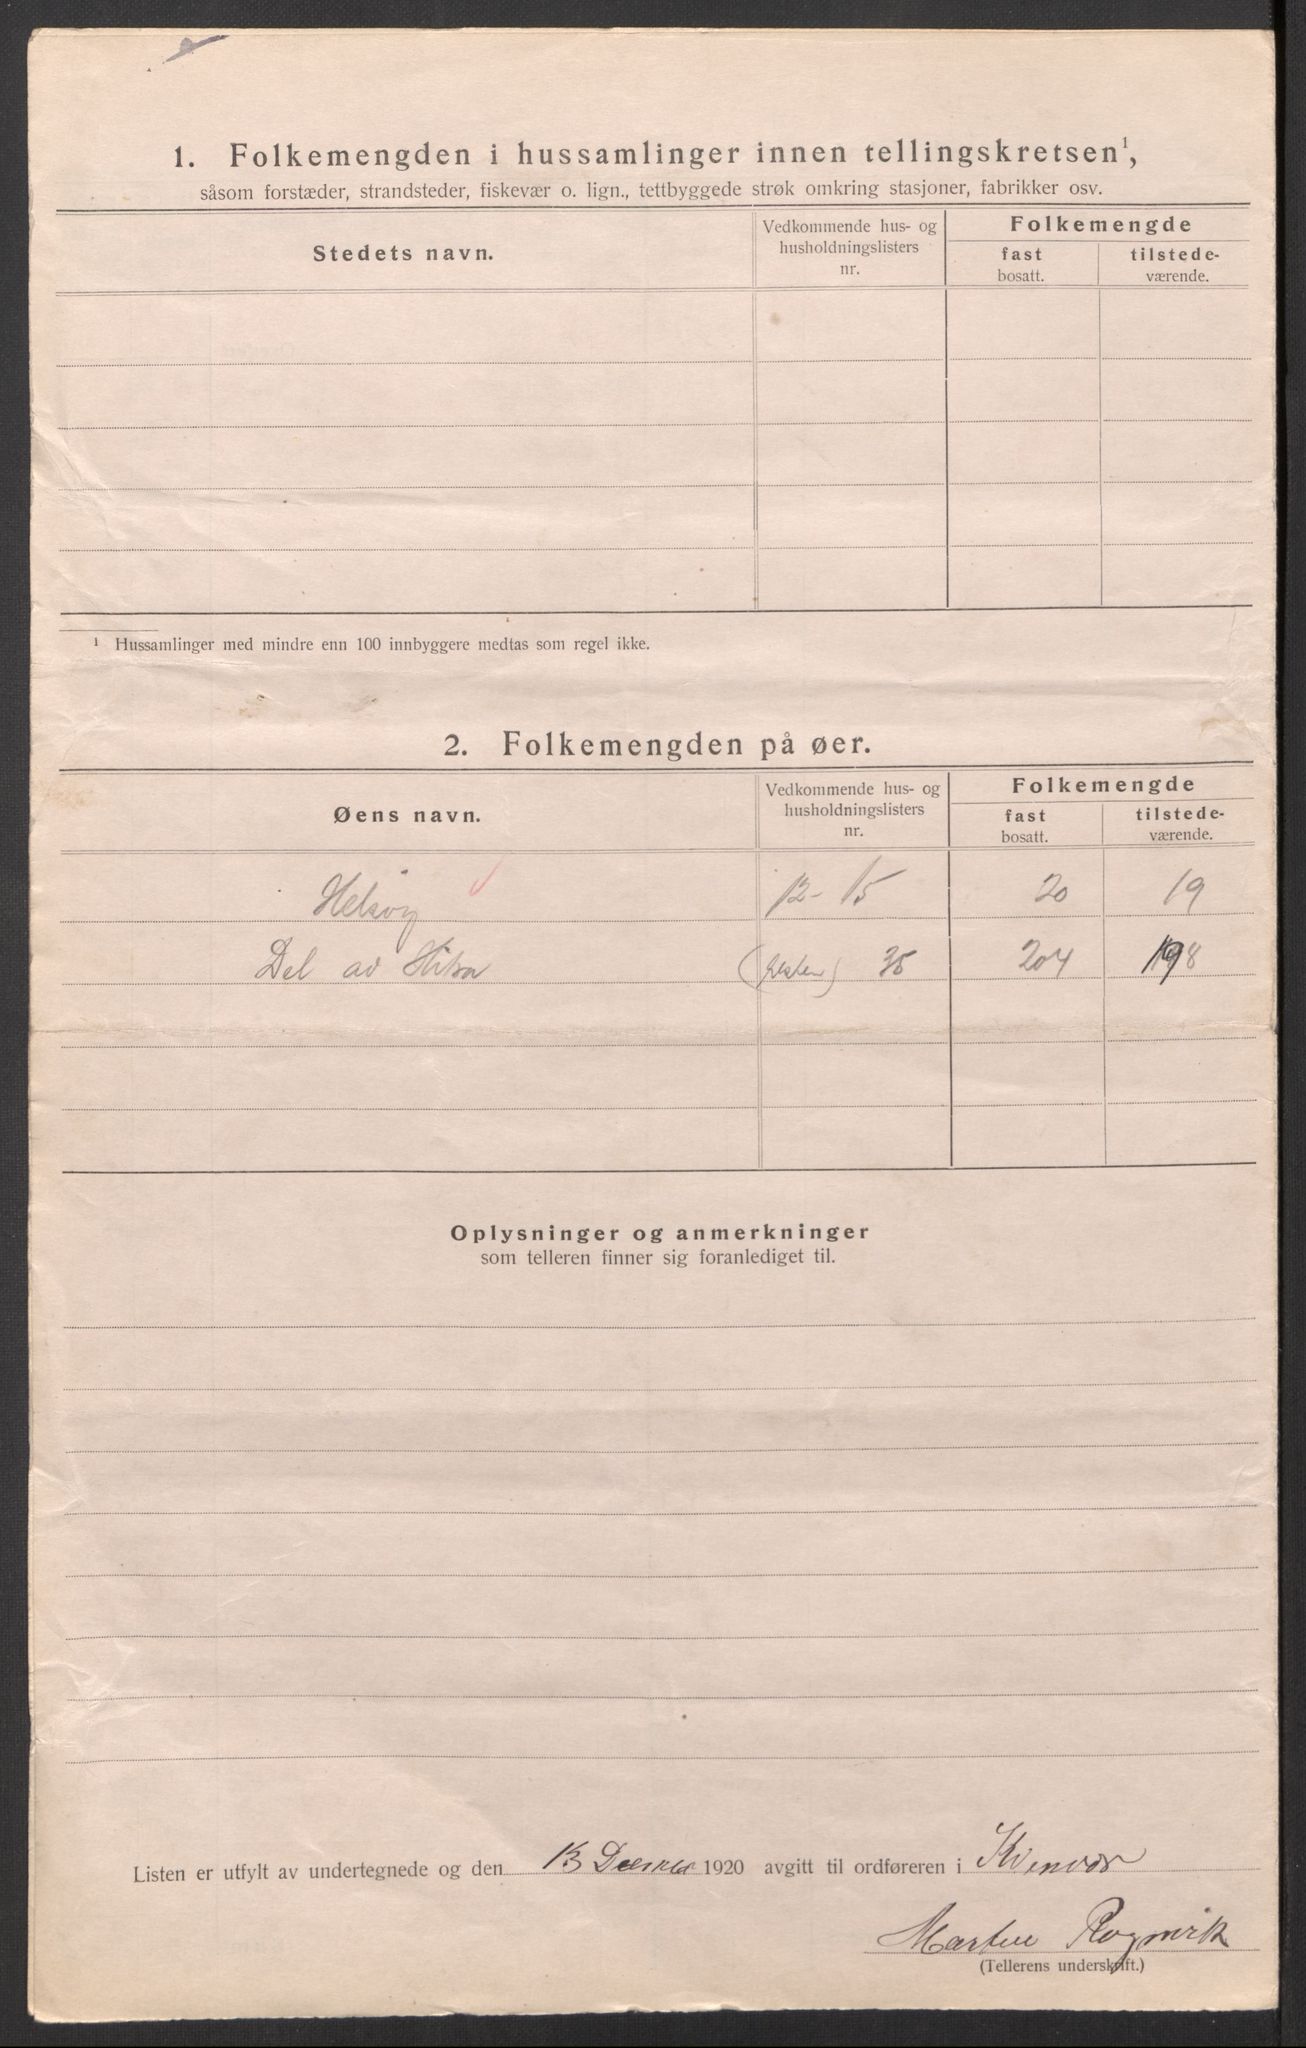 1. Folkemengden i hussamlinger innen tellingskretsen¹,
såsom forstæder, strandsteder, fiskevær o. lign., tettbyggede strøk omkring stasjoner, fabrikker osv.
Stedets navn.
Vedkommende hus- og husholdningslisters nr.
Folkemengde
fast bosatt.
tilstede-værende.
¹ Hussamlinger med mindre enn 100 innbyggere medtas som regel ikke.
2. Folkemengden på øer.
Øens navn.
Vedkommende hus- og husholdningslisters nr.
Folkemengde
fast bosatt.
tilstede-værende.
Helsøy 12- 15 20 19
Del av Hitra (Resten) 35 204 198
Oplysninger og anmerkninger
som telleren finner sig foranlediget til.
Listen er utfylt av undertegnede og den 13 December 1920 avgitt til ordføreren i Kvenvær
Martin Rognvik
(Tellerens underskrift.)